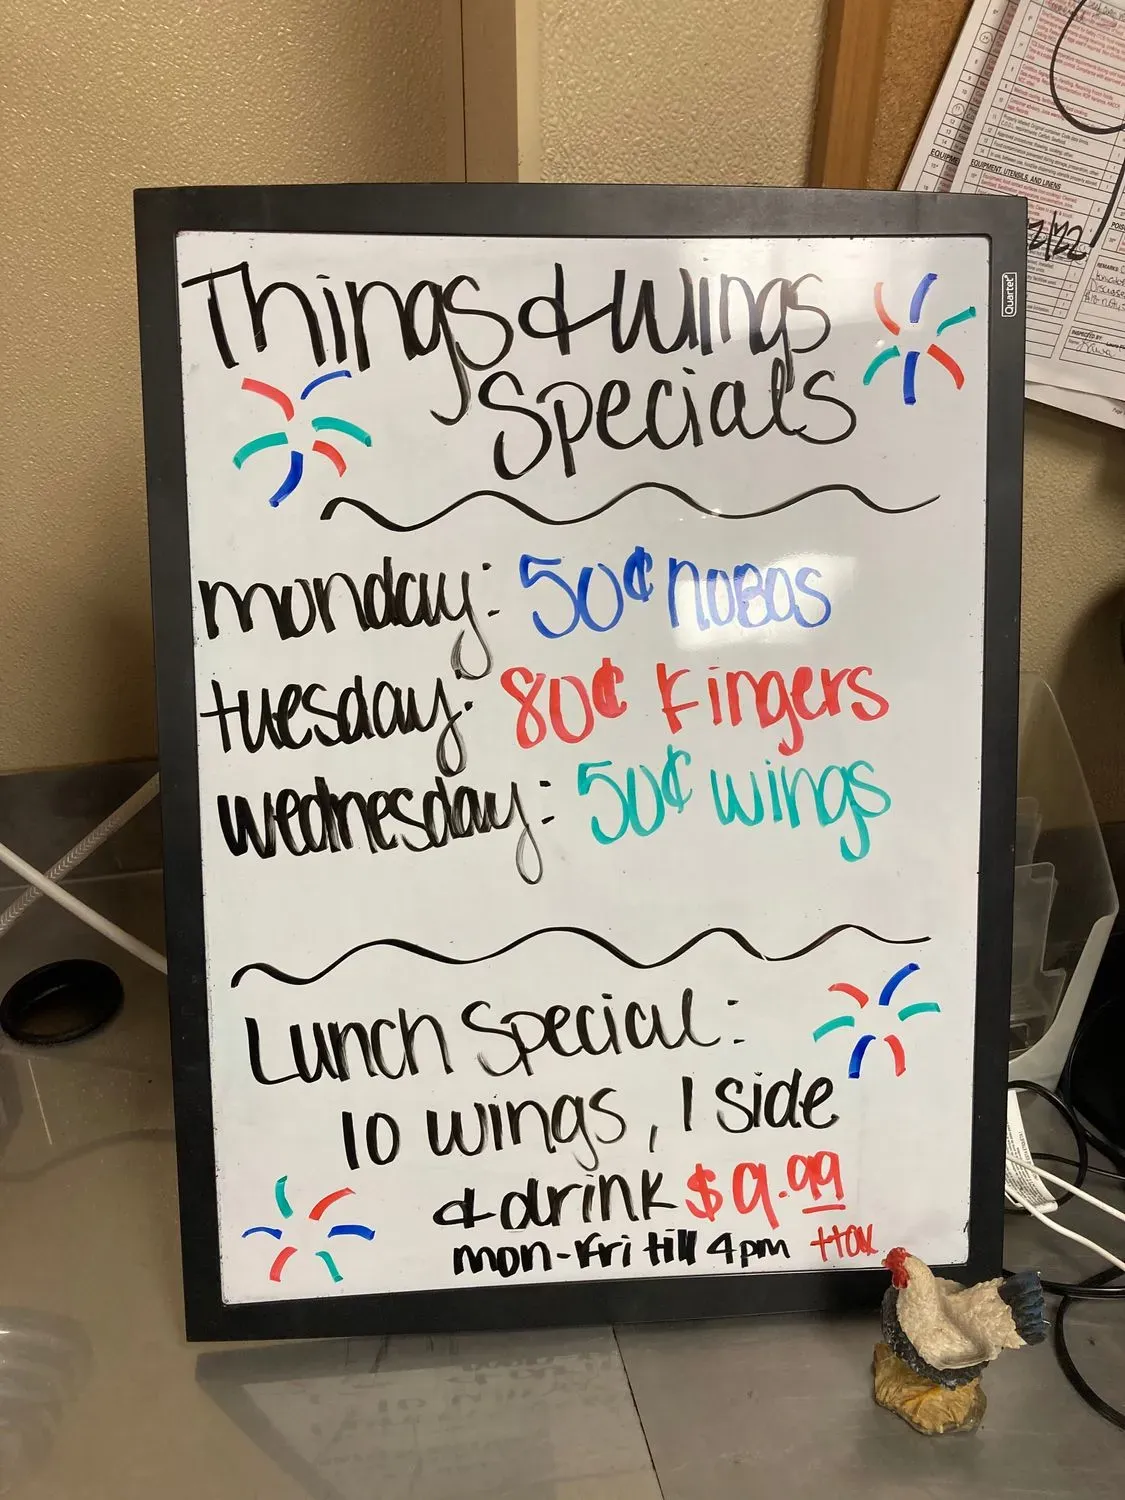 Things & Wings
Specials
monday: 50¢ noBos
tuesday: 80¢ Fingers
wednesday: 50¢ wings
Lunch Special:
10 wings, 1 side
& drink $9.99
mon-Fri till 4pm +tax
Quartet
EQUIPMENT, UTENSILS, AND LINENS